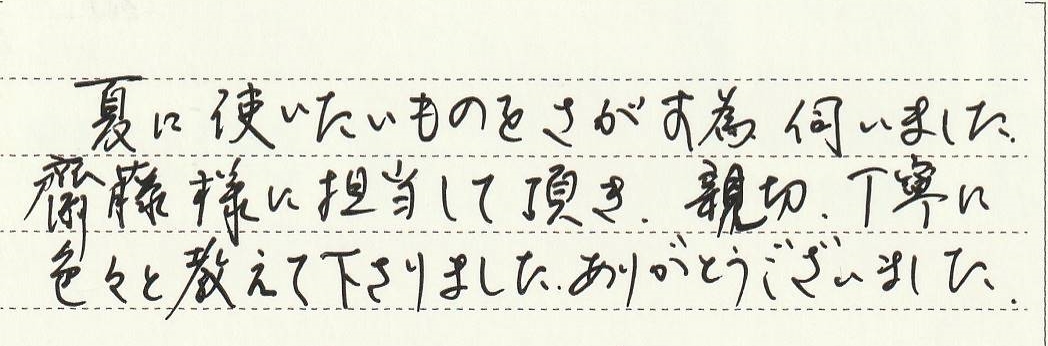 夏に使いたいものをさがす為伺いました.
齋藤様に担当して頂き、親切、丁寧に
色々と教えて下さりました.ありがとうございました.